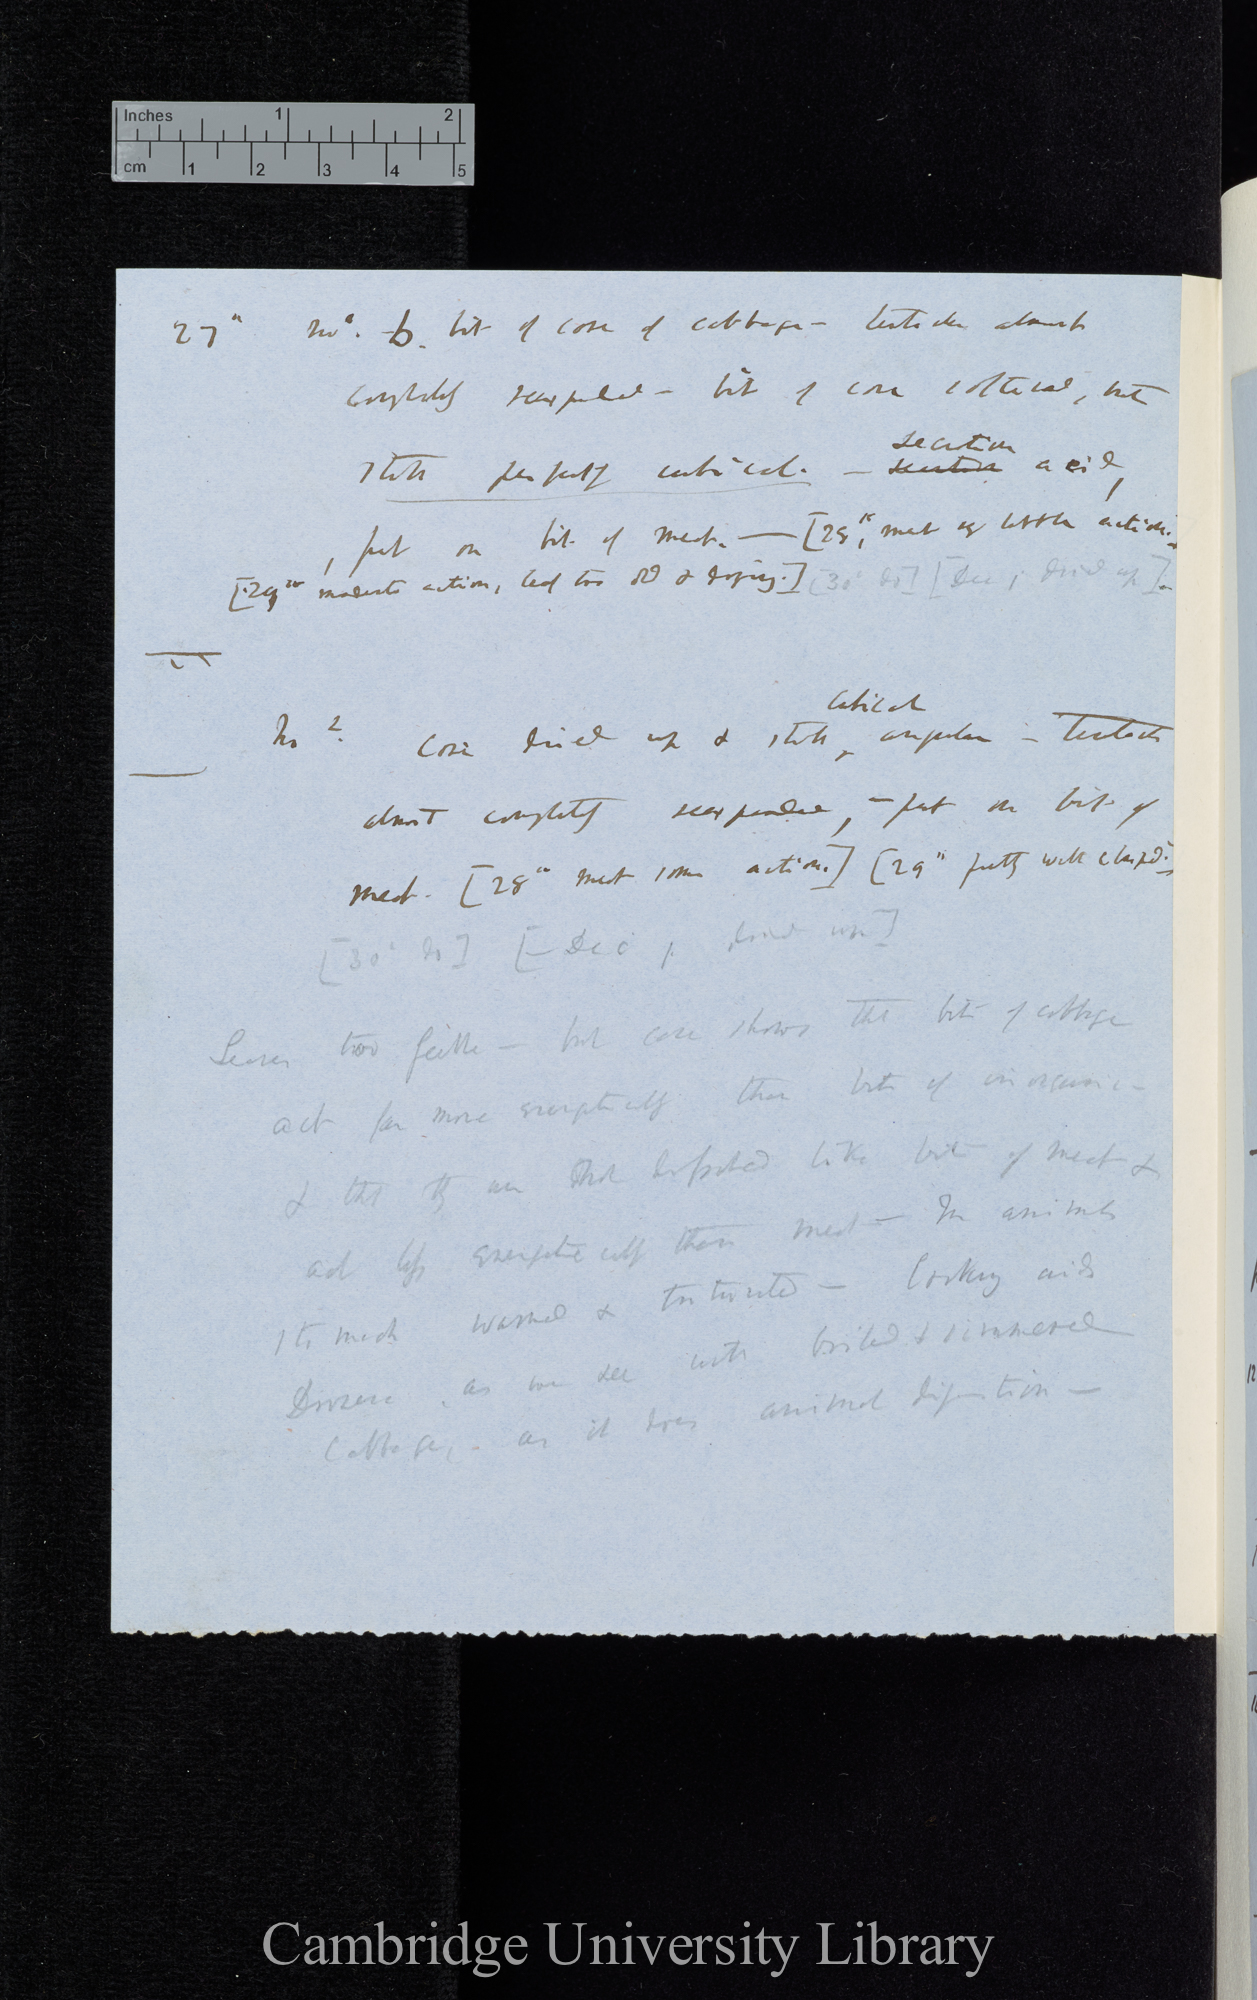 Inches 1 2
cm 1 2 3 4 5
27th No. b. bit of core of cabbage — tentacles almost
completely reexpanded — bit of core softened, but
still perfectly cubical. — secretion
secretion acid,
, put on bit of meat. — [28th, meat of little action.
[29th moderate action, leaf too old & dying.] [30th do] [Dec 1, dried up].
No 2. Core dried up & still cubical angular — tentacles
almost completely reexpanded, — put on bit of
meat. [28th meat some action.] [29th pretty well clasped.
[30th do] [— Dec 1, dried up]
Leaves too feeble — but case shows that bits of cabbage
act far more energetically than bits of inorganic —
& that they are not dissolved like bits of meat &
act less energetically than meat — In animals
stomach warmed & triturated — Cooking aids
Drosera, as we see with boiled & simmered
Cabbage, as it does animal digestion —
Cambridge University Library